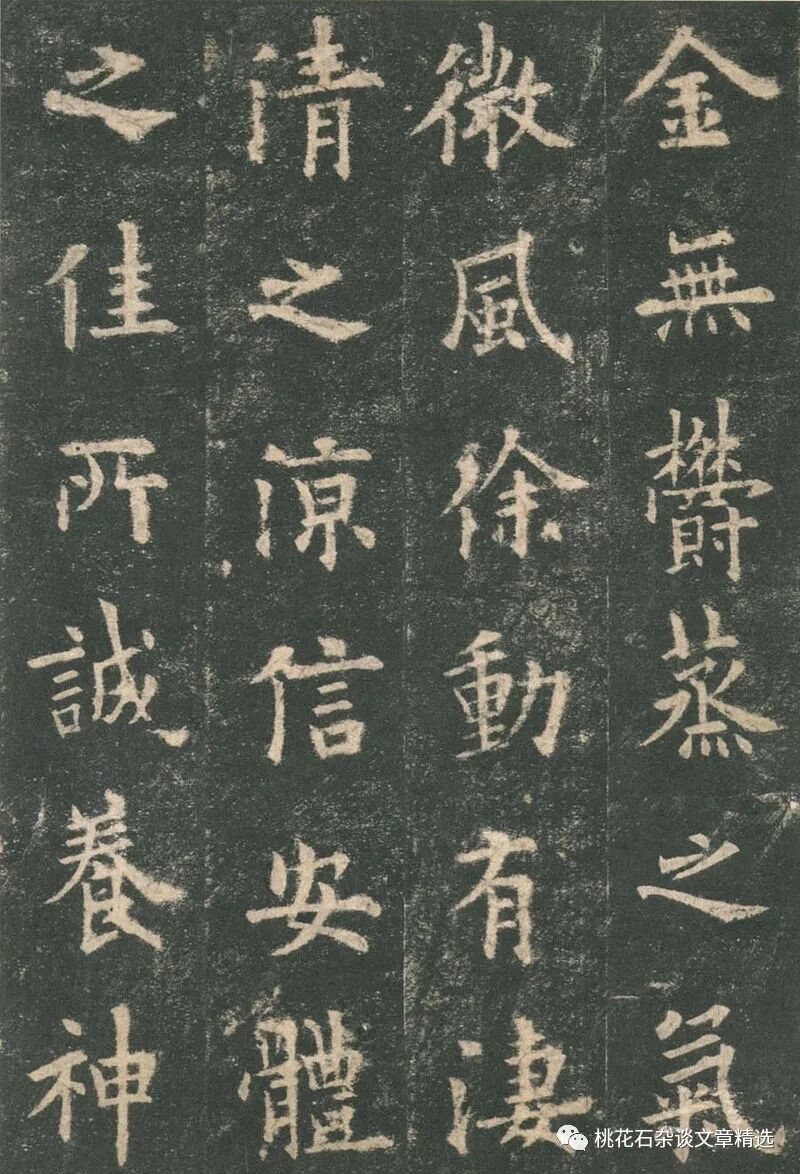 金無欝蒸之氣
微風徐動有淒
清之涼信安體
之佳所誠養神
桃花石杂谈文章精选